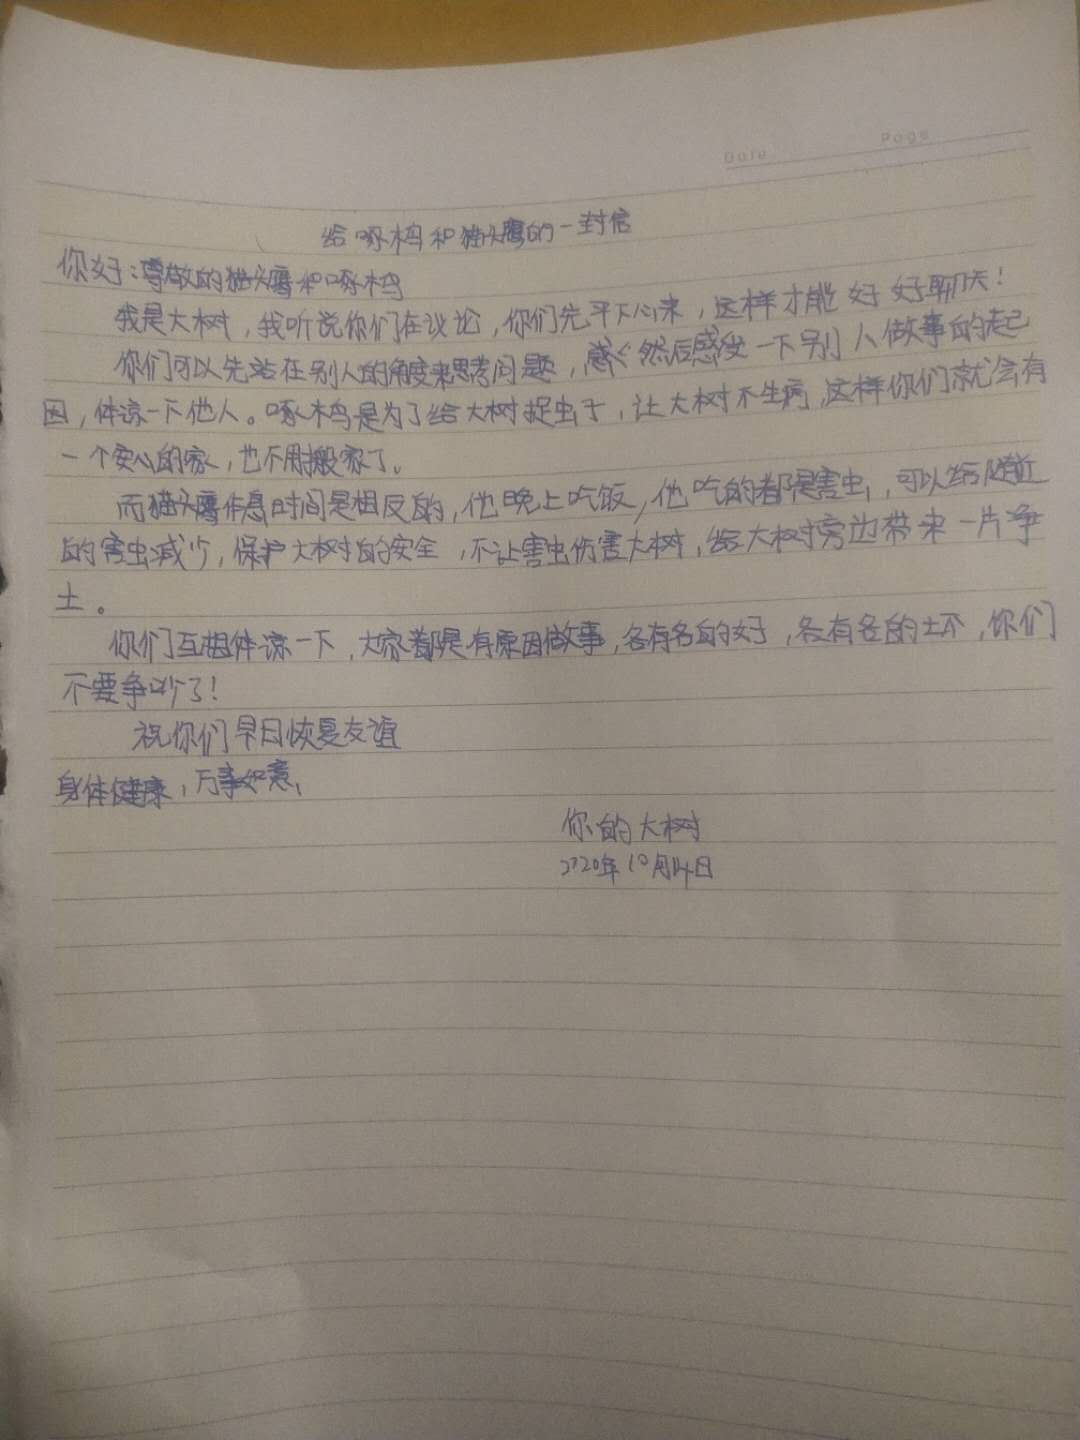 Date
Page
给啄木鸟和猫头鹰的一封信
你好:尊敬的猫头鹰和啄木鸟
我是大树，我听说你们在议论，你们先平下心来，这样才能好好聊天！
你们可以先站在别人的角度来思考问题，然后感受一下别人做事的起
因，体谅一下他人。啄木鸟是为了给大树捉虫子，让大树不生病，这样你们就会有
一个安心的家，也不用搬家了。
而猫头鹰作息时间是相反的，他晚上吃饭，他吃的都是害虫，可以给附近
的害虫减少，保护大树的安全，不让害虫伤害大树，给大树旁边带来一片净
土。
你们互相体谅一下，大家都是有原因做事，各有各的好，各有各的坏，你们
不要争吵了！
祝你们早日恢复友谊
身体健康，万事如意，
你的大树
2020年10月4日